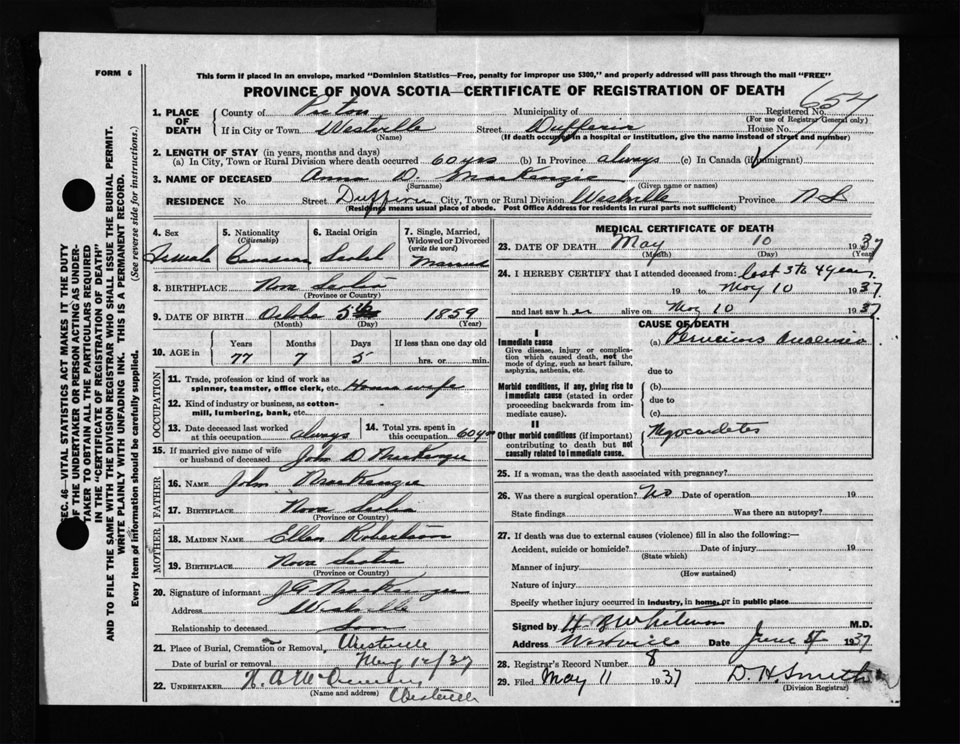 FORM 6
This form if placed in an envelope, marked "Dominion Statistics—Free, penalty for improper use $300," and properly addressed will pass through the mail "FREE"
PROVINCE OF NOVA SCOTIA—CERTIFICATE OF REGISTRATION OF DEATH
SEC. 46—VITAL STATISTICS ACT MAKES IT THE DUTY
OF THE UNDERTAKER OR PERSON ACTING AS UNDER-
TAKER TO OBTAIN ALL THE PARTICULARS REQUIRED
IN THE "CERTIFICATE OF REGISTRATION OF DEATH"
AND TO FILE THE SAME WITH THE DIVISION REGISTRAR WHO SHALL ISSUE THE BURIAL PERMIT.
WRITE PLAINLY WITH UNFADING INK. THIS IS A PERMANENT RECORD.
Every item of information should be carefully supplied. (See reverse side for instructions.)
1. PLACE OF DEATH
County of Pictou Municipality of Registered No. 657
(For use of Registrar General only)
If in City or Town Westville Street Dufferin House No.
(Name) (If death occurred in a hospital or institution, give the name instead of street and number)
2. LENGTH OF STAY (in years, months and days)
(a) In City, Town or Rural Division where death occurred 60 yrs (b) In Province always (c) In Canada (if immigrant)
3. NAME OF DECEASED Anna D. MacKenzie
(Surname) (Given name or names)
RESIDENCE No. Street Dufferin City, Town or Rural Division Westville Province N S
(Residence means usual place of abode. Post Office Address for residents in rural parts not sufficient)
4. Sex Female
5. Nationality (Citizenship) Canadian
6. Racial Origin Scotch
7. Single, Married, Widowed or Divorced (write the word) Married
8. BIRTHPLACE Nova Scotia
(Province or Country)
9. DATE OF BIRTH October 5th 1859
(Month) (Day) (Year)
10. AGE in Years Months Days If less than one day old
77 7 5 hrs. or min.
OCCUPATION
11. Trade, profession or kind of work as spinner, teamster, office clerk, etc. House wife
12. Kind of industry or business, as cotton-mill, lumbering, bank, etc.
13. Date deceased last worked at this occupation always
14. Total yrs. spent in this occupation 60 yrs
15. If married give name of wife or husband of deceased John D MacKenzie
FATHER
16. NAME John MacKenzie
17. BIRTHPLACE Nova Scotia
(Province or Country)
MOTHER
18. MAIDEN NAME Ellen Robertson
19. BIRTHPLACE Nova Scotia
(Province or Country)
20. Signature of informant MacKenzie
Address Westville
Relationship to deceased Son
21. Place of Burial, Cremation or Removal, Westville
Date of burial or removal May 12/37
22. UNDERTAKER
(Name and address) Westville
MEDICAL CERTIFICATE OF DEATH
23. DATE OF DEATH May 10 1937
(Month) (Day) (Year)
24. I HEREBY CERTIFY that I attended deceased from: last 3 to 4 years
19 to May 10 1937
and last saw her alive on May 10 1937
CAUSE OF DEATH
I
Immediate cause
Give disease, injury or complication which caused death, not the mode of dying, such as heart failure, asphyxia, asthenia, etc.
(a) Pernicious Anaemia
due to
Morbid conditions, if any, giving rise to immediate cause (stated in order proceeding backwards from immediate cause).
(b)
due to
(c)
II
Other morbid conditions (if important) contributing to death but not causally related to immediate cause.
Myocarditis
25. If a woman, was the death associated with pregnancy?
26. Was there a surgical operation? No Date of operation 19
State findings Was there an autopsy?
27. If death was due to external causes (violence) fill in also the following:—
Accident, suicide or homicide? Date of injury 19
(State which)
Manner of injury
(How sustained)
Nature of injury
Specify whether injury occurred in industry, in home, or in public place
Signed by M.D.
Address Westville Date June 8 1937
28. Registrar's Record Number 8
29. Filed May 11 1937 D. H. Smith
(Division Registrar)